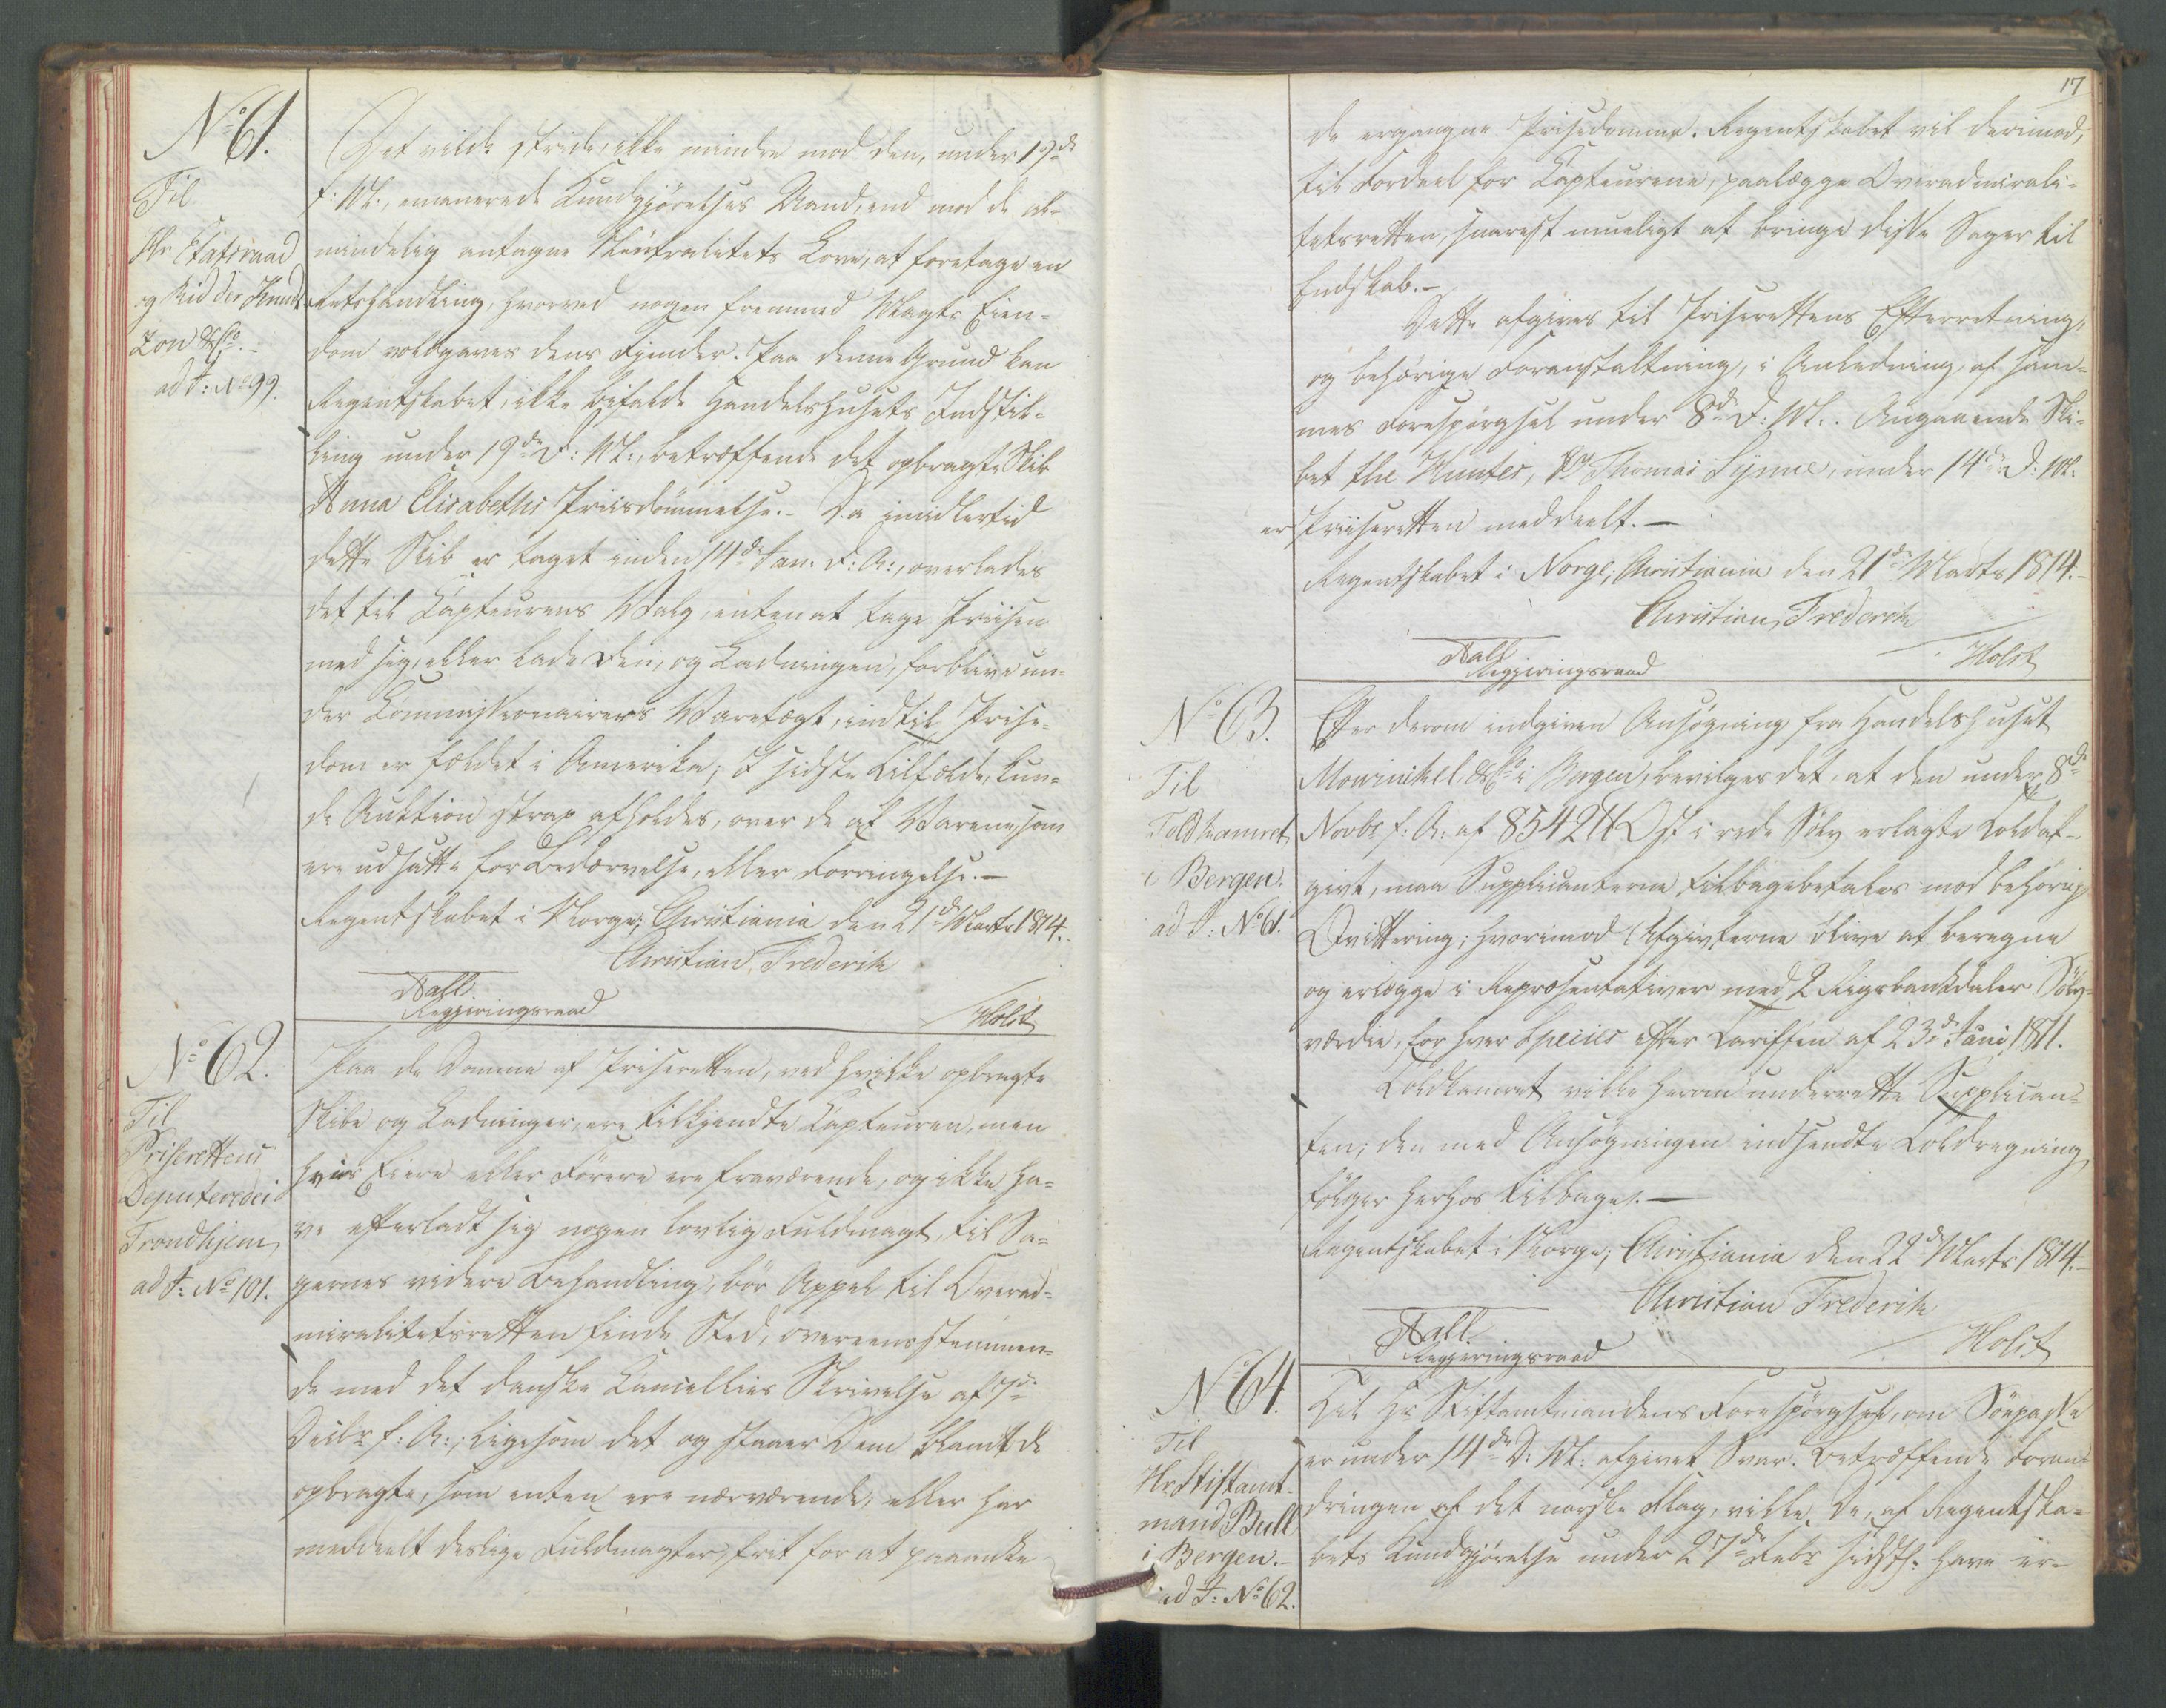 No 61.
Til
Hr Etatsraad
og Ridder Knudt
zon & Co. -
ad J: No 99.
Det vilde stride, ikke mindre mod den, under 19de
f: M:, emanerede Kundgjørelses Aand, end mod de al-
mindelig antagne Neutralitets Love, at foretage en
Retshandling, hvorved nogen fremmed Magts Eien-
dom voldgaves dens Fjender. Paa denne Grund kan
Regentskabet, ikke bifalde Handelshusets Indstil-
ling under 19de d: M:, betræffende det opbragte Skib
Anna Elisabeths Priisdømmelse. - Da imidlertid
dette Skib er taget inden 14de Jan. d: A:, overlades
det til Capteurens Valg, enten at tage Priisen
med sig, eller lade den, og Ladningen, forblive un-
der Commissionairers Varetægt, indtil Prise-
dom er fældet i Amerika; I sidste Tilfælde, kun-
de Auktion strax afholdes, over de af Varene, som
ere udsatte for Bedærvelse, eller Forringelse. -
Regentskabet i Norge; Christiania den 21de Marts 1814.
Christian Frederik
Aall
Regjeringsraad
Holst
No 62.
Til
Priserettens
Deputerede i
Trondhjem
ad J: No 101.
Paa de Domme af Priseretten, ved hvilke opbragte
Skibe og Ladninger, ere tilkjendte Capteuren, men
hvis Eiere eller Förere ere fraværende, og ikke ha-
ve efterladt sig nogen lovlig Fuldmagt, til Sa-
gernes videre Behandling, bör Appel til Overad-
miralitetsretten finde Sted, overeensstemmen-
de med det danske Cancellies Skrivelse af 7de
Decbr f: A:, ligesom det og staaer Dem blandt de
opbragte, som enten ere nærværende, eller har
meddeelt deslige Fuldmagter, frit for at paaanke
17
de ergangne Prisedomme. Regentskabet vil derimod,
til Fordeel for Capteurene, paalægge Overadmirali-
tetsretten, snarest mueligt at bringe disse Sager til
Endskab. -
Dette afgives til Priserettens Efterretning,
og behörige Foranstaltning, i Anledning af sam-
mes Forespörgsel under 8de d: M:. Angaaende Ski-
bet the Hunter, Thomas Lynne, under 14de d: M:
er Priiseretten meddeelt. -
Regentskabet i Norge; Christiania den 21de Marts 1814. -
Christian Frederik
Aall
Regjeringsraad
Holst
No 63.
Til
Toldkamret
i Bergen.
ad J: No 61.
Efter derom indgiven Ansøgning fra Handelshuset
Mowinkel & Co i Bergen, bevilges det, at den under 8de
Novbr f: A: af 8542 Ost i rede Sölv erlagte Toldaf-
givt, maa Supplicanterne tilbagebetales mod behörig
Qvittering; hvorimod Afgivterne blive at beregne
og erlægge i Repræsentativer med 2 Rigsbankdaler Sölv-
værdie, for hver Species efter Tariffen af 23de Juni 1811.
Toldkamret ville herom underrette Supplican-
ten; den med Ansøgningen indsendte Toldregning
fölger herhos tilbage. -
Regentskabet i Norge; Christiania den 22de Marts 1814. -
Christian Frederik
Aall
Regjeringsraad
Holst
No 64.
Til
Hr Stiftamt-
mand Bull
i Bergen. -
ad J: No 62.
Til Hr Stiftamtmandens Forespörgsel, om Söepasse
er under 14de d: M: afgivet Svar. Betræffende Foran-
dringen af det norske Flag, ville De, af Regentska-
bets Kundgjörelse under 27de Febr sidstl: have er-